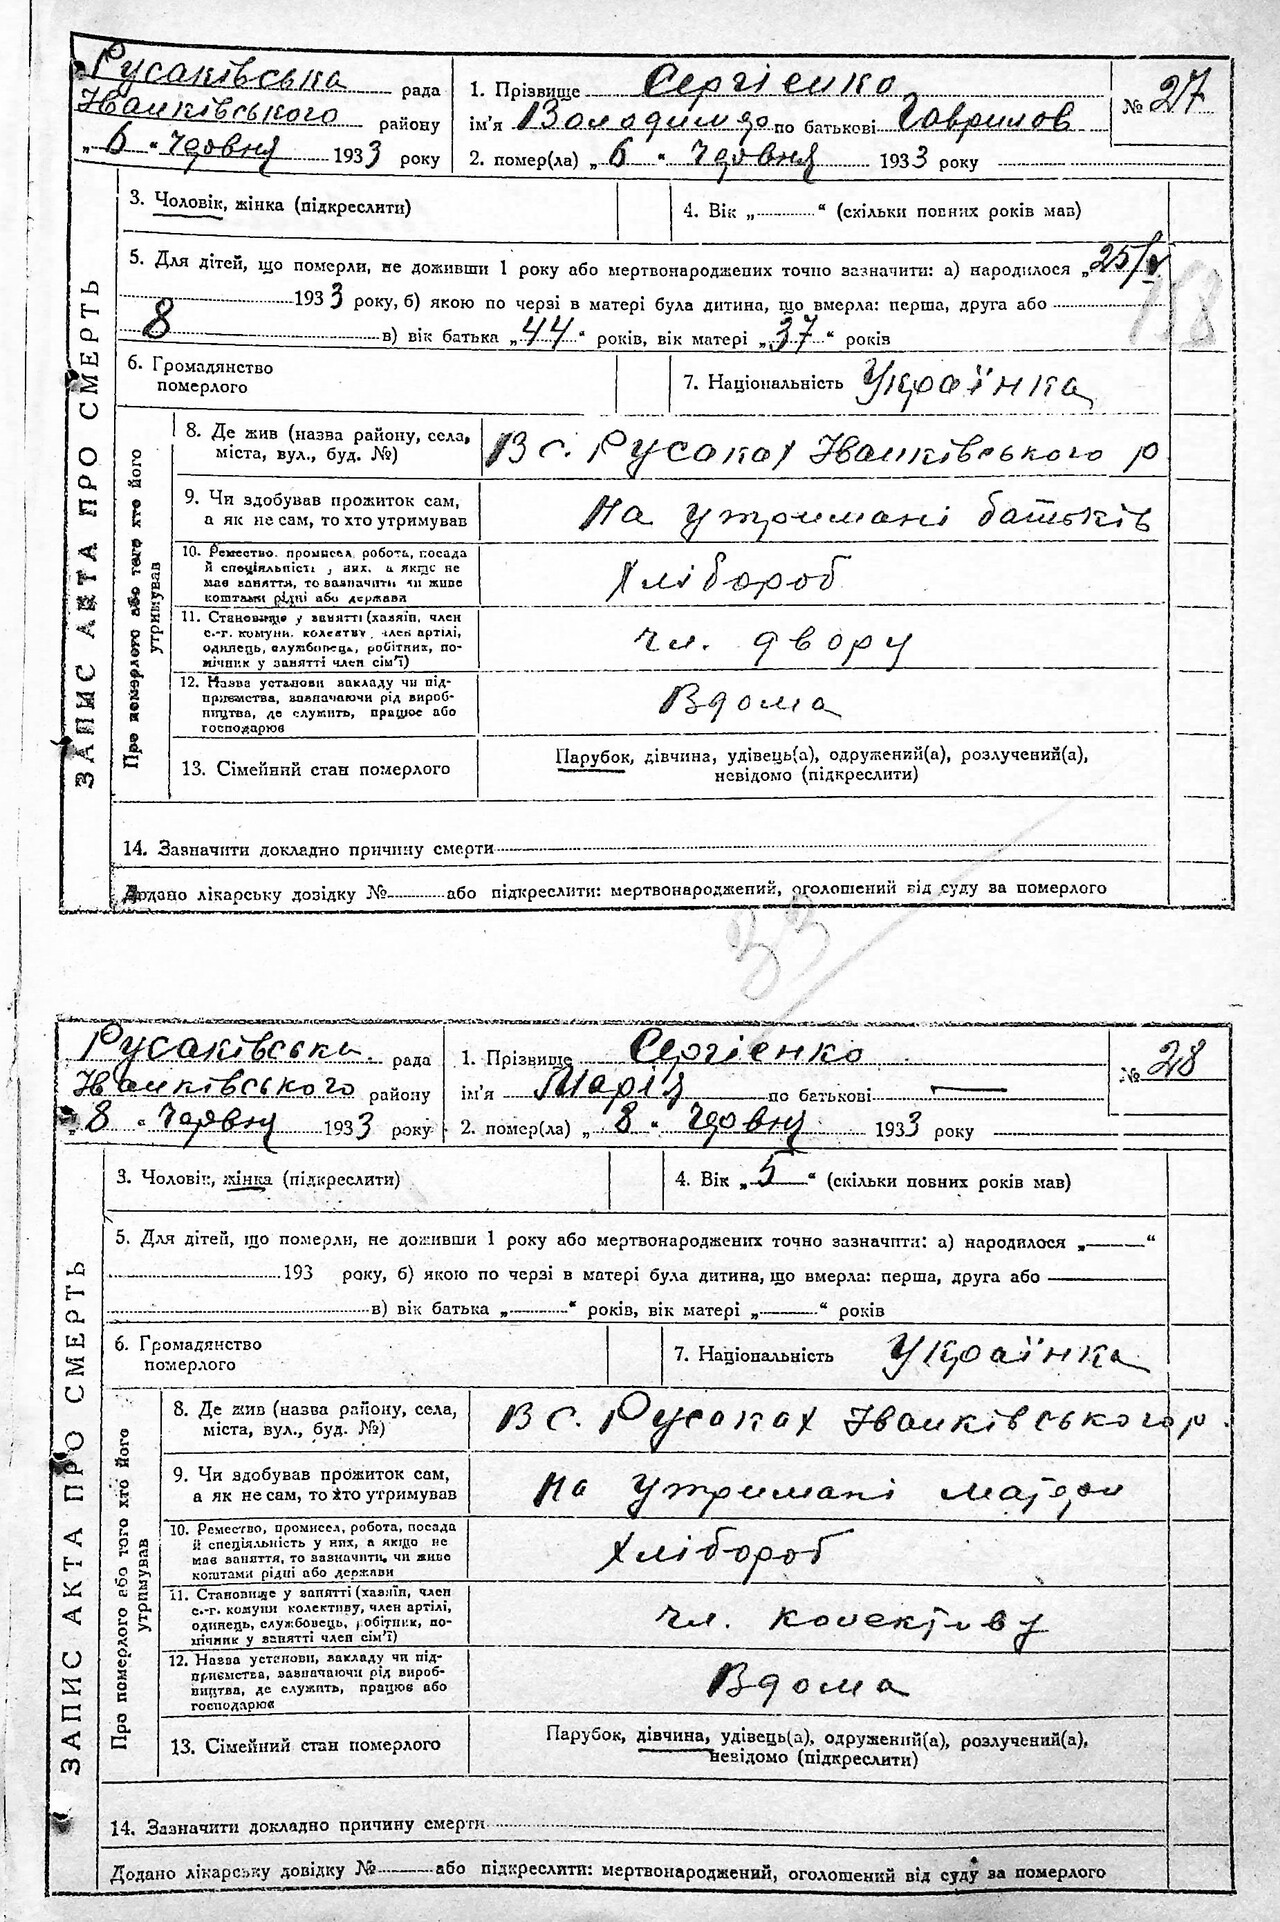 Русаківська рада
Іванківського району
„6“ Червня 1933 року
1. Прізвище Сергієнко
ім'я Володимир по батькові Гаврилов
2. помер(ла) „6“ Червня 1933 року
№ 27
ЗАПИС АКТА ПРО СМЕРТЬ
3. Чоловік, жінка (підкреслити)
4. Вік „ “ (скільки повних років мав)
5. Для дітей, що померли, не доживши 1 року або мертвонароджених точно зазначити: а) народилося „25/V
1933 року, б) якою по черзі в матері була дитина, що вмерла: перша, друга або
8 в) вік батька „44“ років, вік матері „37“ років
158
6. Громадянство
померлого
7. Національність Українка
Про померлого або того хто його
утримував
8. Де жив (назва району, села,
міста, вул., буд. №)
В с. Русаках Іванківського р
9. Чи здобував прожиток сам,
а як не сам, то хто утримував
На утримані батьків
10. Ремество, промисел, робота, посада
й спеціяльність у них, а якщо не
має заняття, то зазначити чи живе
коштами рідні або держави
Хлібороб
11. Становище у занятті (хазяїн, член
с.-г. комуни, колективу, член артілі,
одинець, службовець, робітник, по-
мічник у занятті член сім'ї)
чл. двору
12. Назва установи закладу чи під-
приємства, зазначаючи рід вироб-
ництва, де служить, працює або
господарює
Вдома
13. Сімейний стан померлого
Парубок, дівчина, удівець(а), одружений(а), розлучений(а),
невідомо (підкреслити)
14. Зазначити докладно причину смерти
Додано лікарську довідку № або підкреслити: мертвонароджений, оголошений від суду за померлого
33
Русаківська рада
Іванківського району
„8“ Червня 1933 року
1. Прізвище Сергієнко
ім'я Марія по батькові —
2. помер(ла) „8“ Червня 1933 року
№ 28
ЗАПИС АКТА ПРО СМЕРТЬ
3. Чоловік, жінка (підкреслити)
4. Вік „5“ (скільки повних років мав)
5. Для дітей, що померли, не доживши 1 року або мертвонароджених точно зазначити: а) народилося „—“
193 року, б) якою по черзі в матері була дитина, що вмерла: перша, друга або —
в) вік батька „—“ років, вік матері „—“ років
6. Громадянство
померлого
7. Національність Українка
Про померлого або того хто його
утримував
8. Де жив (назва району, села,
міста, вул., буд. №)
В с. Русаках Іванківського р.
9. Чи здобував прожиток сам,
а як не сам, то хто утримував
На утримані матери
10. Ремество, промисел, робота, посада
й спеціяльність у них, а якщо не
має заняття, то зазначити, чи живе
коштами рідні або держави
Хлібороб
11. Становище у занятті (хазяїн, член
с.-г. комуни колективу, член артілі,
одинець, службовець, робітник, по-
мічник у занятті член сім'ї)
чл. колективу
12. Назва установи, закладу чи під-
приємства, зазначаючи рід вироб-
ництва, де служить, працює або
господарює
Вдома
13. Сімейний стан померлого
Парубок, дівчина, удівець(а), одружений(а), розлучений(а),
невідомо (підкреслити)
14. Зазначити докладно причину смерти
Додано лікарську довідку № або підкреслити: мертвонароджений, оголошений від суду за померлого